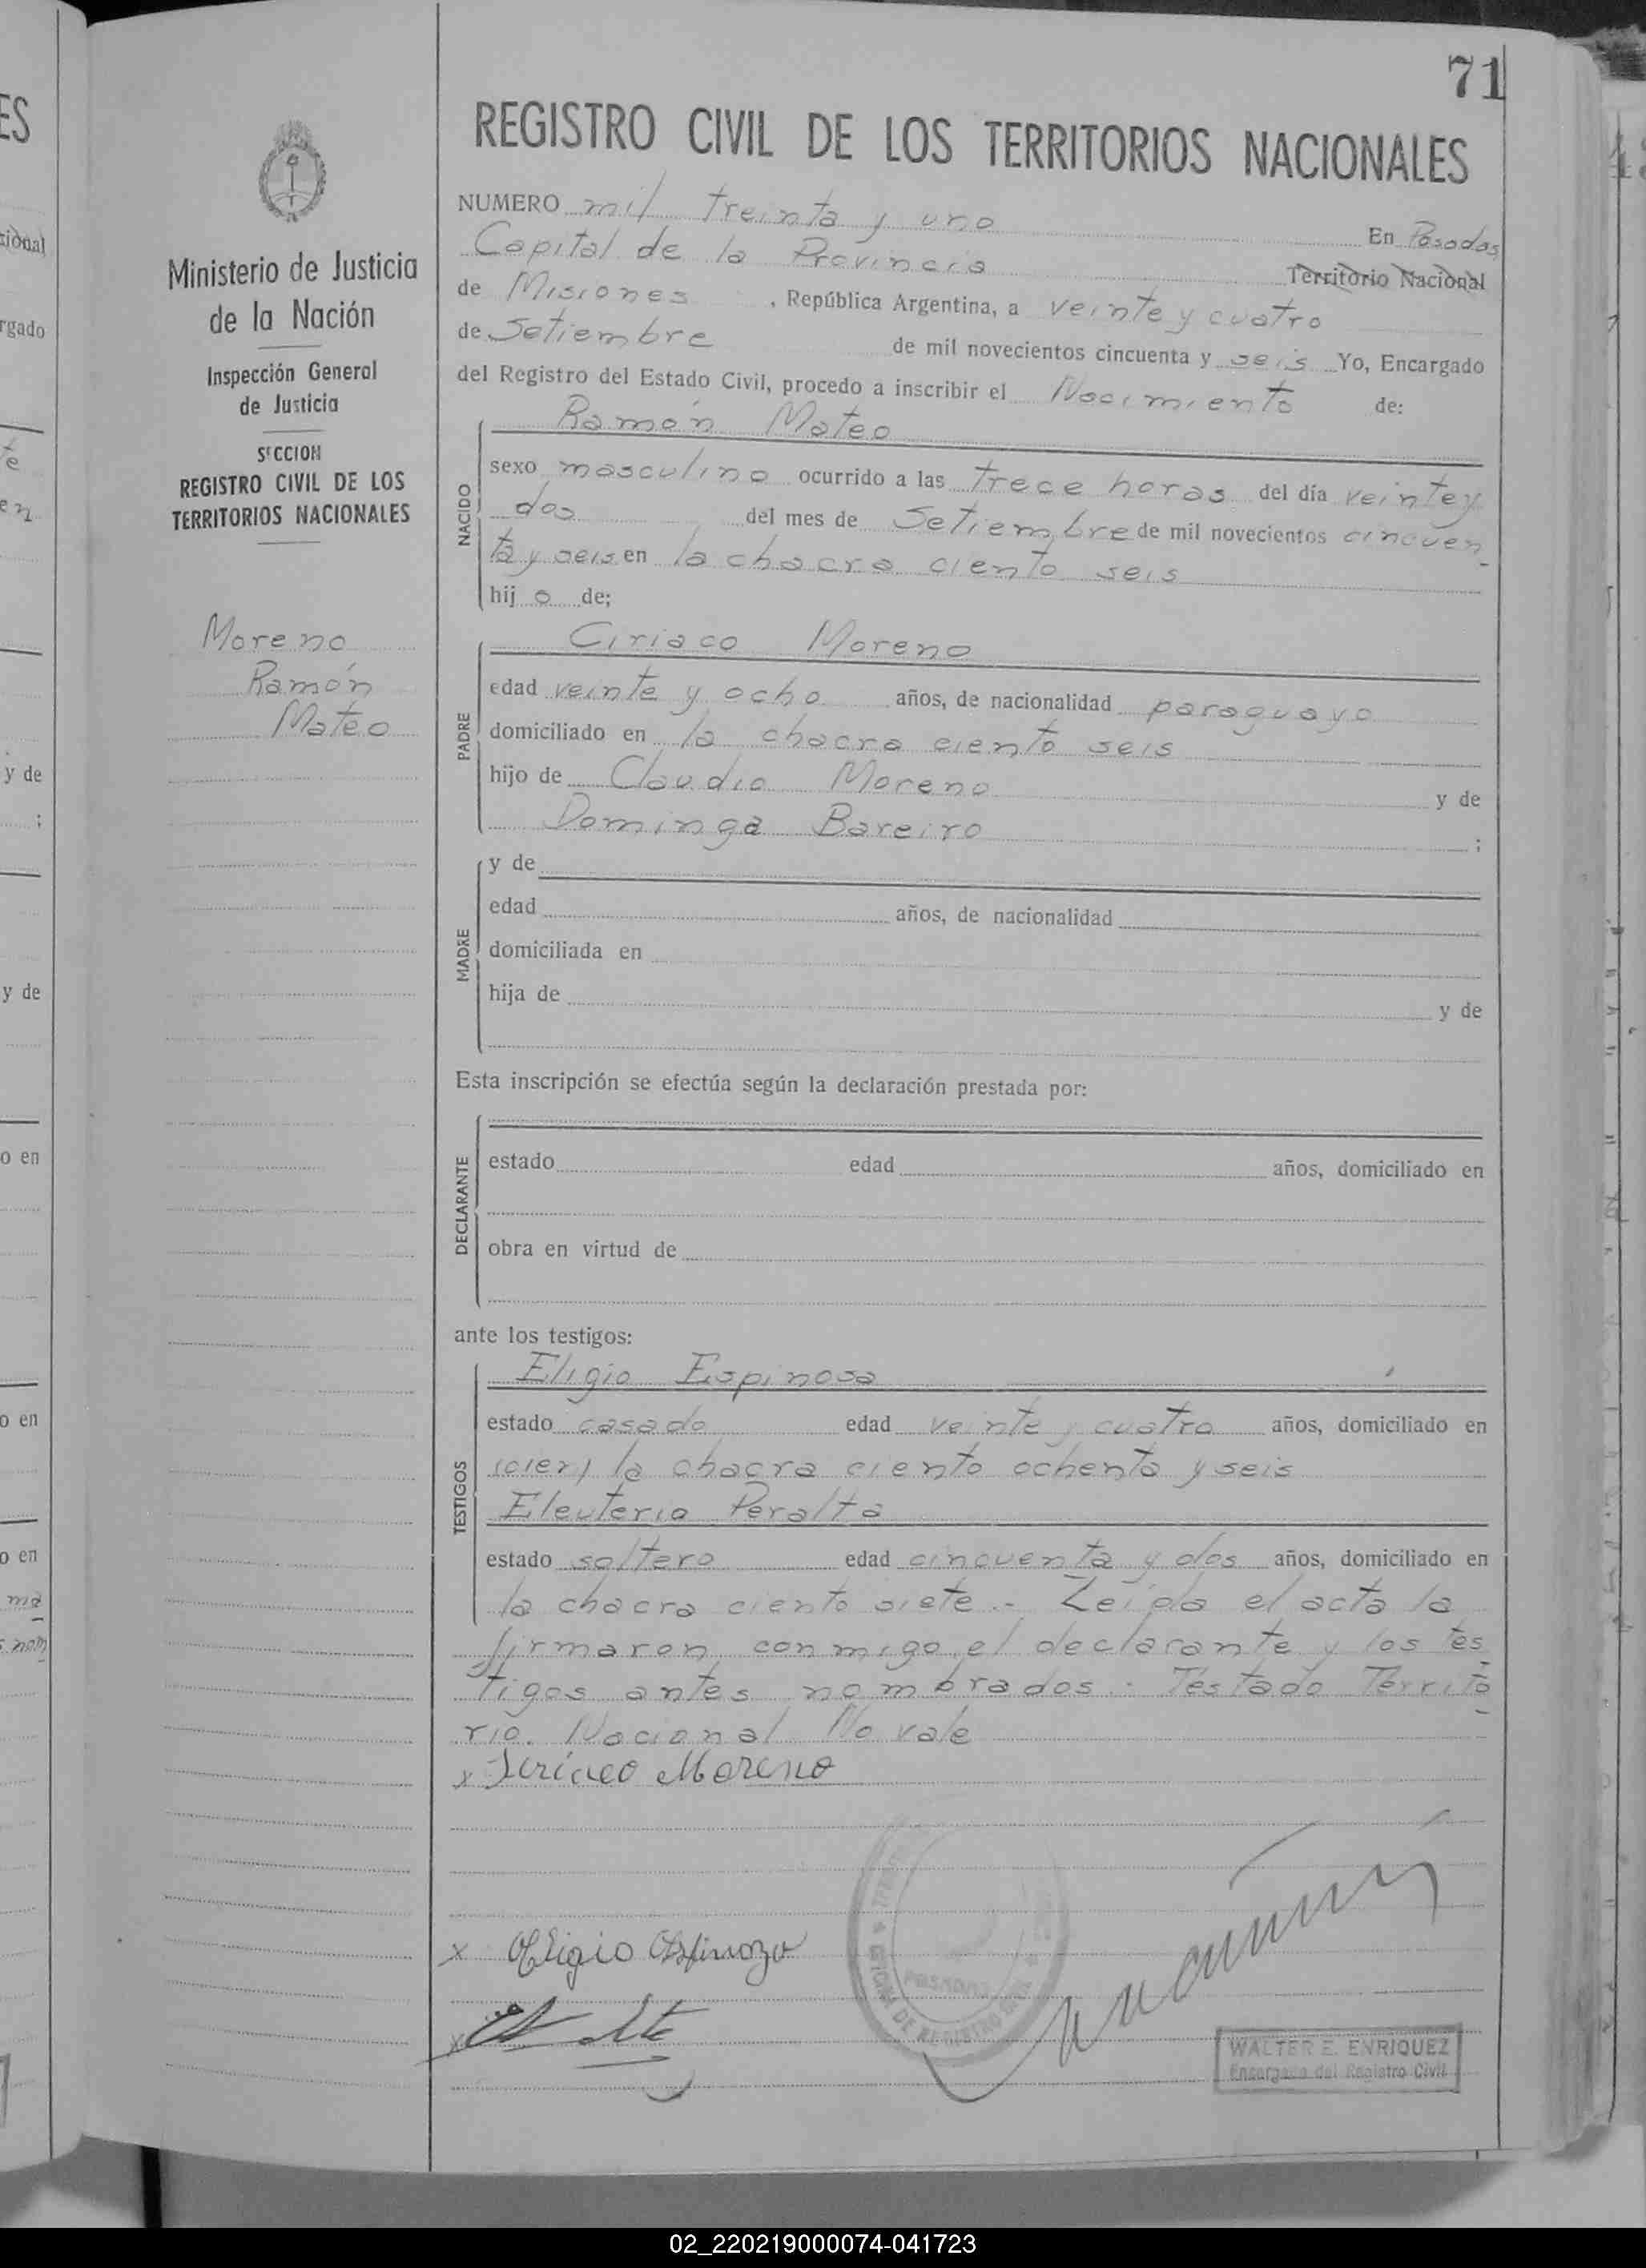 71
REGISTRO CIVIL DE LOS TERRITORIOS NACIONALES
NUMERO mil treinta y uno En Posadas
Capital de la Provincia Territorio Nacional
de Misiones , República Argentina, a veinte y cuatro
de Setiembre de mil novecientos cincuenta y seis Yo, Encargado
del Registro del Estado Civil, procedo a inscribir el Nacimiento de:
Ministerio de Justicia
de la Nación
Inspección General
de Justicia
SECCION
REGISTRO CIVIL DE LOS
TERRITORIOS NACIONALES
Moreno
Ramón
Mateo
NACIDO
Ramón Mateo
sexo masculino ocurrido a las trece horas del día veinte y
dos del mes de Setiembre de mil novecientos cincuen
ta y seis en la chacra ciento seis
hij o de;
PADRE
Ciriaco Moreno
edad veinte y ocho años, de nacionalidad paraguayo
domiciliado en la chacra ciento seis
hijo de Claudio Moreno y de
Dominga Bareiro ;
MADRE
y de
edad años, de nacionalidad
domiciliada en
hija de y de
Esta inscripción se efectúa según la declaración prestada por:
DECLARANTE
estado edad años, domiciliado en
obra en virtud de
ante los testigos:
TESTIGOS
Eligio Espinosa
estado casado edad veinte y cuatro años, domiciliado en
la chacra ciento ochenta y seis
Eleuterio Peralta
estado soltero edad cincuenta y dos años, domiciliado en
la chacra ciento siete.- Leida el acta la
firmaron conmigo el declarante y los tes
tigos antes nombrados.- Testado Territo
rio. Nacional No vale
x Siriaco Moreno
x Eligio Espinoza
x
POSADAS
WALTER E. ENRIQUEZ
Encargado del Registro Civil
ES
cional
rgado
te
en
y de
;
y de
o en
o en
o en
02_220219000074-041723